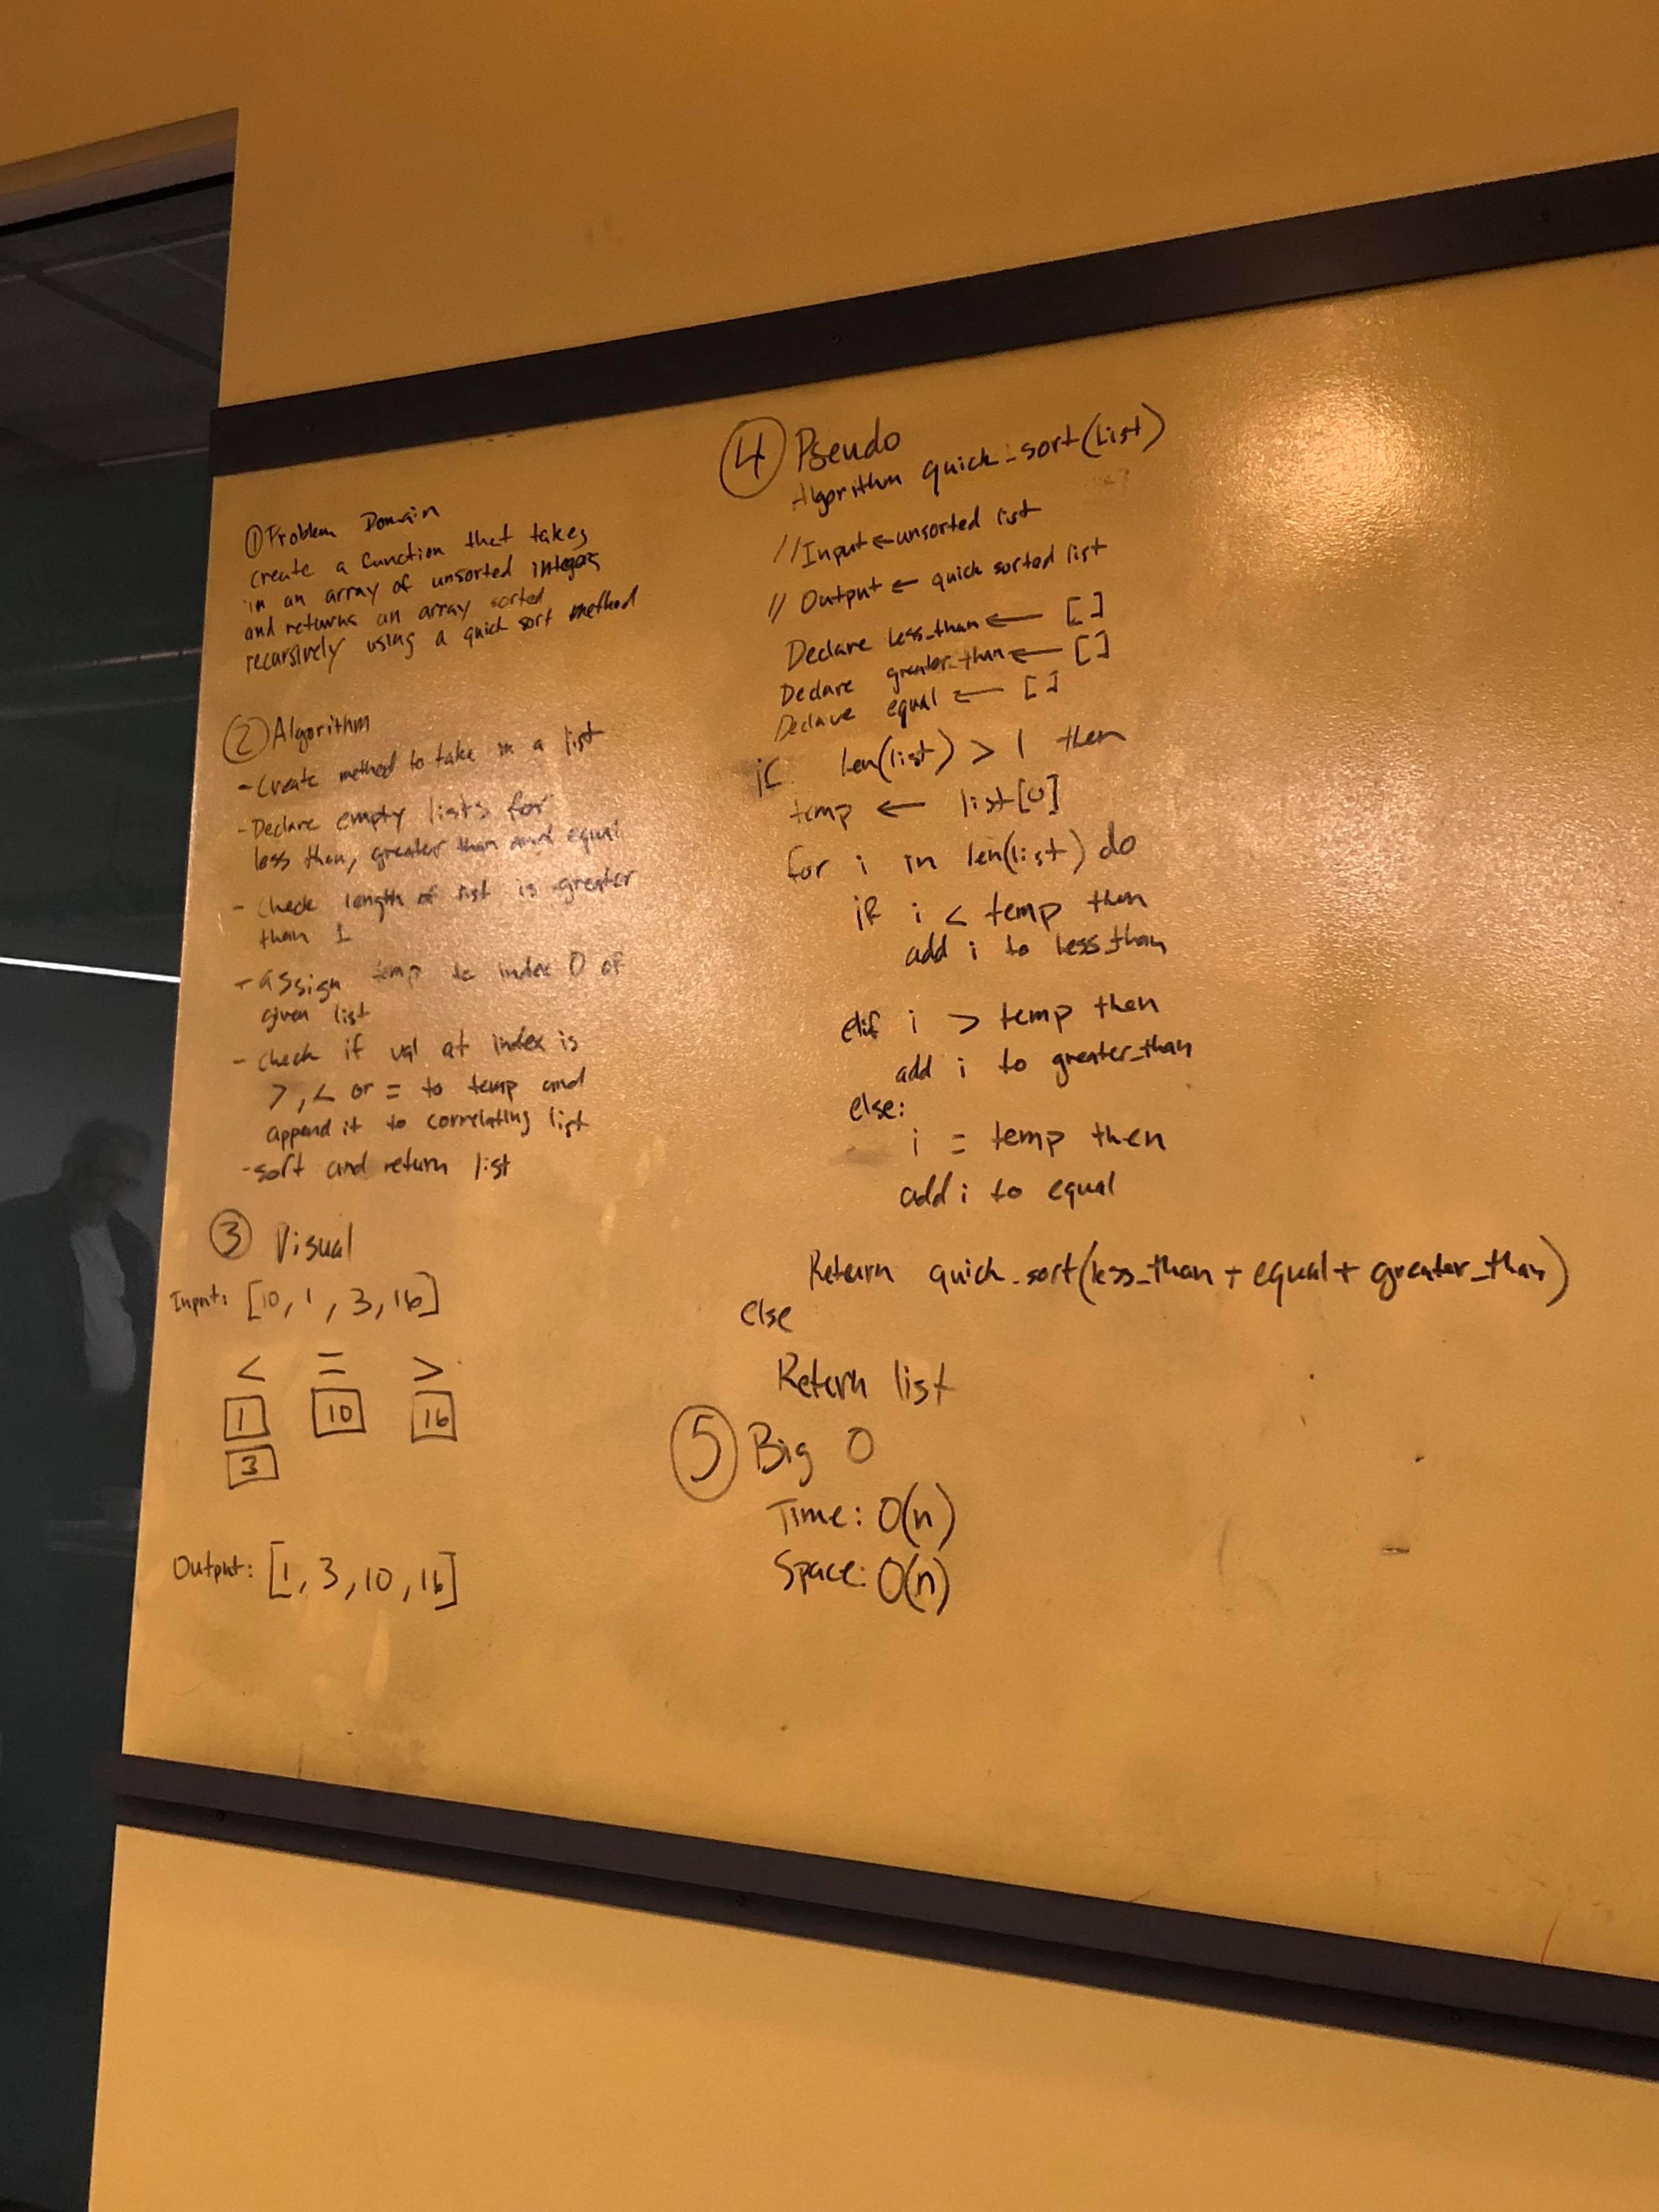 ① Problem Domain
Create a function that takes
in an array of unsorted integers
and returns an array sorted
recursively using a quick sort method
② Algorithm
- Create method to take in a list
- Declare empty lists for
less than, greater than and equal
- Check length of list is greater
than 1
- assign temp to index 0 of
given list
- check if val at index is
>, < or = to temp and
append it to correlating list
- sort and return list
③ Visual
Input: [10, 1, 3, 16]
< = >
1 10 16
3
Output: [1, 3, 10, 16]
④ Pseudo
Algorithm quick_sort(list)
// Input ← unsorted list
// Output ← quick sorted list
Declare less_than ← []
Declare greater_than ← []
Declare equal ← []
if len(list) > 1 then
temp ← list[0]
for i in len(list) do
if i < temp then
add i to less_than
elif i > temp then
add i to greater_than
else:
i = temp then
add i to equal
Return quick_sort(less_than + equal + greater_than)
else
Return list
⑤ Big O
Time: O(n)
Space: O(n)